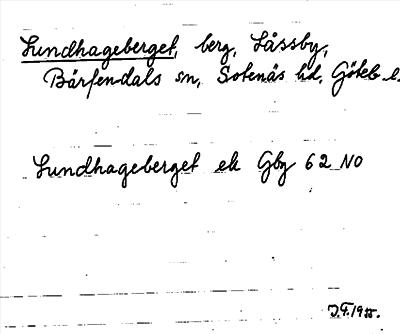 Lundhageberget, berg, Låssby,
Bärfendals sn, Sotenäs hd, Göteb. l.
Lundhageberget ek Gbg 62 NO
J.F. 19